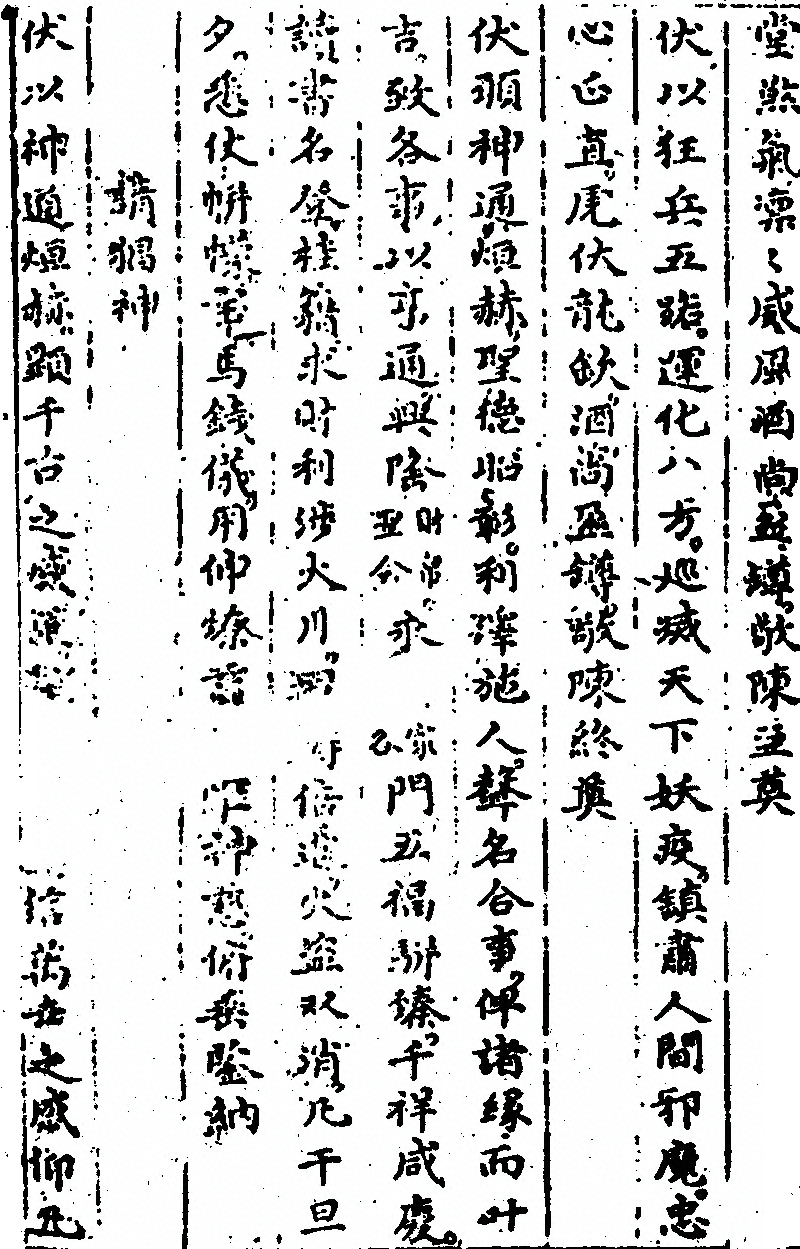 堂煞氣凛〻威風酒尚盃罇敬陳主奠
伏以狂兵五路運化八方巡滅天下妖疫鎮肅人間邪魔忠
心正直尾伏龍欽酒尚盈罇敬陳終奠
伏願神通烜赫聖德昭彰利澤施人聲名合事俾諸緣而叶
吉致各事以亨通興隆財帛亞分永家公門五福駢臻千祥咸廢
讀書名登桂籍求財利涉火川四時倍進火盜双消凡干旦
夕悉仗帡幪第馬錢儀用伸燎詣 神慈俯垂鑒納
請猖神
伏以神通烜赫顯千古之威 萬古之感仰正